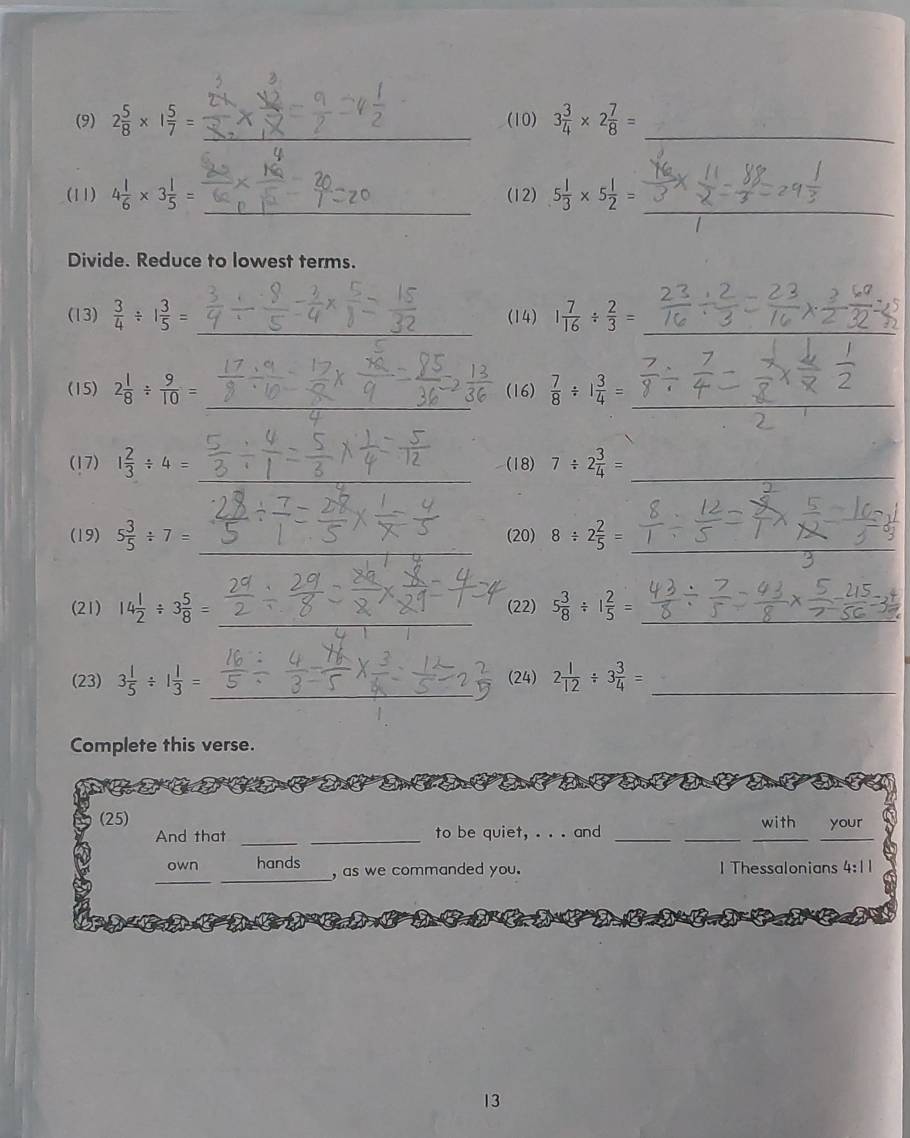 (9) 2 5/8 × 1 5/7 = 21/8 × 12/7 = 9/2 = 4 1/2
(10) 3 3/4 × 2 7/8 =
(11) 4 1/6 × 3 1/5 = 25/6 × 16/5 = 20/1 = 20
(12) 5 1/3 × 5 1/2 = 16/3 × 11/2 = 88/3 = 29 1/3
Divide. Reduce to lowest terms.
(13) 3/4 ÷ 1 3/5 = 3/4 ÷ 8/5 = 3/4 × 5/8 = 15/32
(14) 1 7/16 ÷ 2/3 = 23/16 ÷ 2/3 = 23/16 × 3/2 = 69/32 =
(15) 2 1/8 ÷ 9/10 = 17/8 ÷ 9/10 = 17/8 × 10/9 = 85/36 = 2 13/36
(16) 7/8 ÷ 1 3/4 = 7/8 ÷ 7/4 = 7/8 × 4/7 1/2
(17) 1 2/3 ÷ 4 = 5/3 ÷ 4/1 = 5/3 × 1/4 = 5/12
(18) 7 ÷ 2 3/4 =
(19) 5 3/5 ÷ 7 = 28/5 ÷ 7/1 = 28/5 × 1/7 = 4/5
(20) 8 ÷ 2 2/5 = 8/1 ÷ 12/5 = 8/1 × 5/12 = 10/3 = 3 1/3
(21) 14 1/2 ÷ 3 5/8 = 29/2 ÷ 29/8 = 29/2 × 8/29 = 4/1 = 4
(22) 5 3/8 ÷ 1 2/5 = 43/8 ÷ 7/5 = 43/8 × 5/7 = 215/56 = 3
(23) 3 1/5 ÷ 1 1/3 = 16/5 ÷ 4/3 = 16/5 × 3/4 = 12/5 = 2 2/5
(24) 2 1/12 ÷ 3 3/4 =
Complete this verse.
(25)
And that ____ ____ to be quiet, . . . and ____ ____ with your
own hands, as we commanded you. I Thessalonians 4:11
13